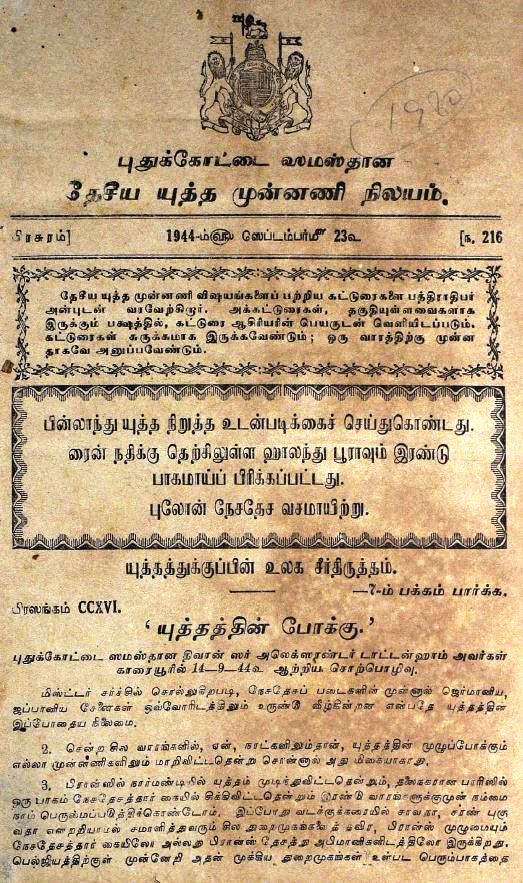 1920
புதுக்கோட்டை ஸமஸ்தான
தேசீய யுத்த முன்னணி நிலயம்.
பிரசுரம்]
1944-ம்௵ ஸெப்டம்பர்௴ 23௳
[ந. 216
தேசீய யுத்த முன்னணி விஷயங்களைப் பற்றிய கட்டுரைகளை பத்திராதிபர்
அன்புடன் வரவேற்கிறார். அக்கட்டுரைகள், தகுதியுள்ளவைகளாக
இருக்கும் பக்ஷத்தில், கட்டுரை ஆசிரியரின் பெயருடன் வெளியிடப்படும்.
கட்டுரைகள் சுருக்கமாக இருக்கவேண்டும்; ஒரு வாரத்திற்கு முன்ன
தாகவே அனுப்பவேண்டும்.
பின்லாந்து யுத்த நிறுத்த உடன்படிக்கைச் செய்துகொண்டது.
ரைன் நதிக்கு தெற்கிலுள்ள ஹாலந்து பூராவும் இரண்டு
பாகமாய்ப் பிரிக்கப்பட்டது.
புலோன் நேசதேச வசமாயிற்று.
யுத்தத்துக்குப்பின் உலக சீர்திருத்தம்.
—7-ம் பக்கம் பார்க்க.
பிரஸங்கம் CCXVI.
‘யுத்தத்தின் போக்கு.’
புதுக்கோட்டை ஸமஸ்தான திவான் ஸர் அலெக்ஸாண்டர் டாட்டன்ஹாம் அவர்கள்
காரையூரில் 14—9—44௳ ஆற்றிய சொற்பொழிவு.
மிஸ்டர் சர்ச்சில் சொல்லுகிறபடி, நேசதேசப் படைகளின் முன்னால் ஜெர்மானிய,
ஜப்பானிய சேனைகள் ஒவ்வோரிடத்திலும் உருண்டு வீழ்கின்றன என்பதே யுத்தத்தின்
இப்போதைய நிலைமை.
2. சென்ற சில வாரங்களில், ஏன், நாட்களிலும்தான், யுத்தத்தின் முழுப்போக்கும்
எல்லா முன்னணிகளிலும் மாறிவிட்டதென்று சொன்னால் அது மிகையாகாது.
3. பிரான்ஸில் நார்மண்டியில் யுத்தம் முடிந்துவிட்டதென்றும், தலைநகரான பாரிஸில்
ஒரு பாகம் நேசதேசத்தார் கையில் சிக்கிவிட்டதென்றும் இரண்டு வாரங்களுக்குமுன் நம்மை
நாம் பெருமைப்படுத்திக்கொண்டோம். இப்போது வடக்குக்கரையில் சரண் புகு
வதா என்றறியாமல் சமாளித்துவரும் சில துறைமுகங்களைத் தவிர, பிரான்ஸ் முழுமையும்
நேசதேசத்தார் கையிலோ அல்லது பிரான்ஸ் தேசத்து அபிமானிகளிடத்திலோ இருக்கிறது.
பெல்ஜியத்திற்குள் முன்னேறி அதன் முக்கிய துறைமுகங்கள் உள்பட பெரும்பாகத்தை